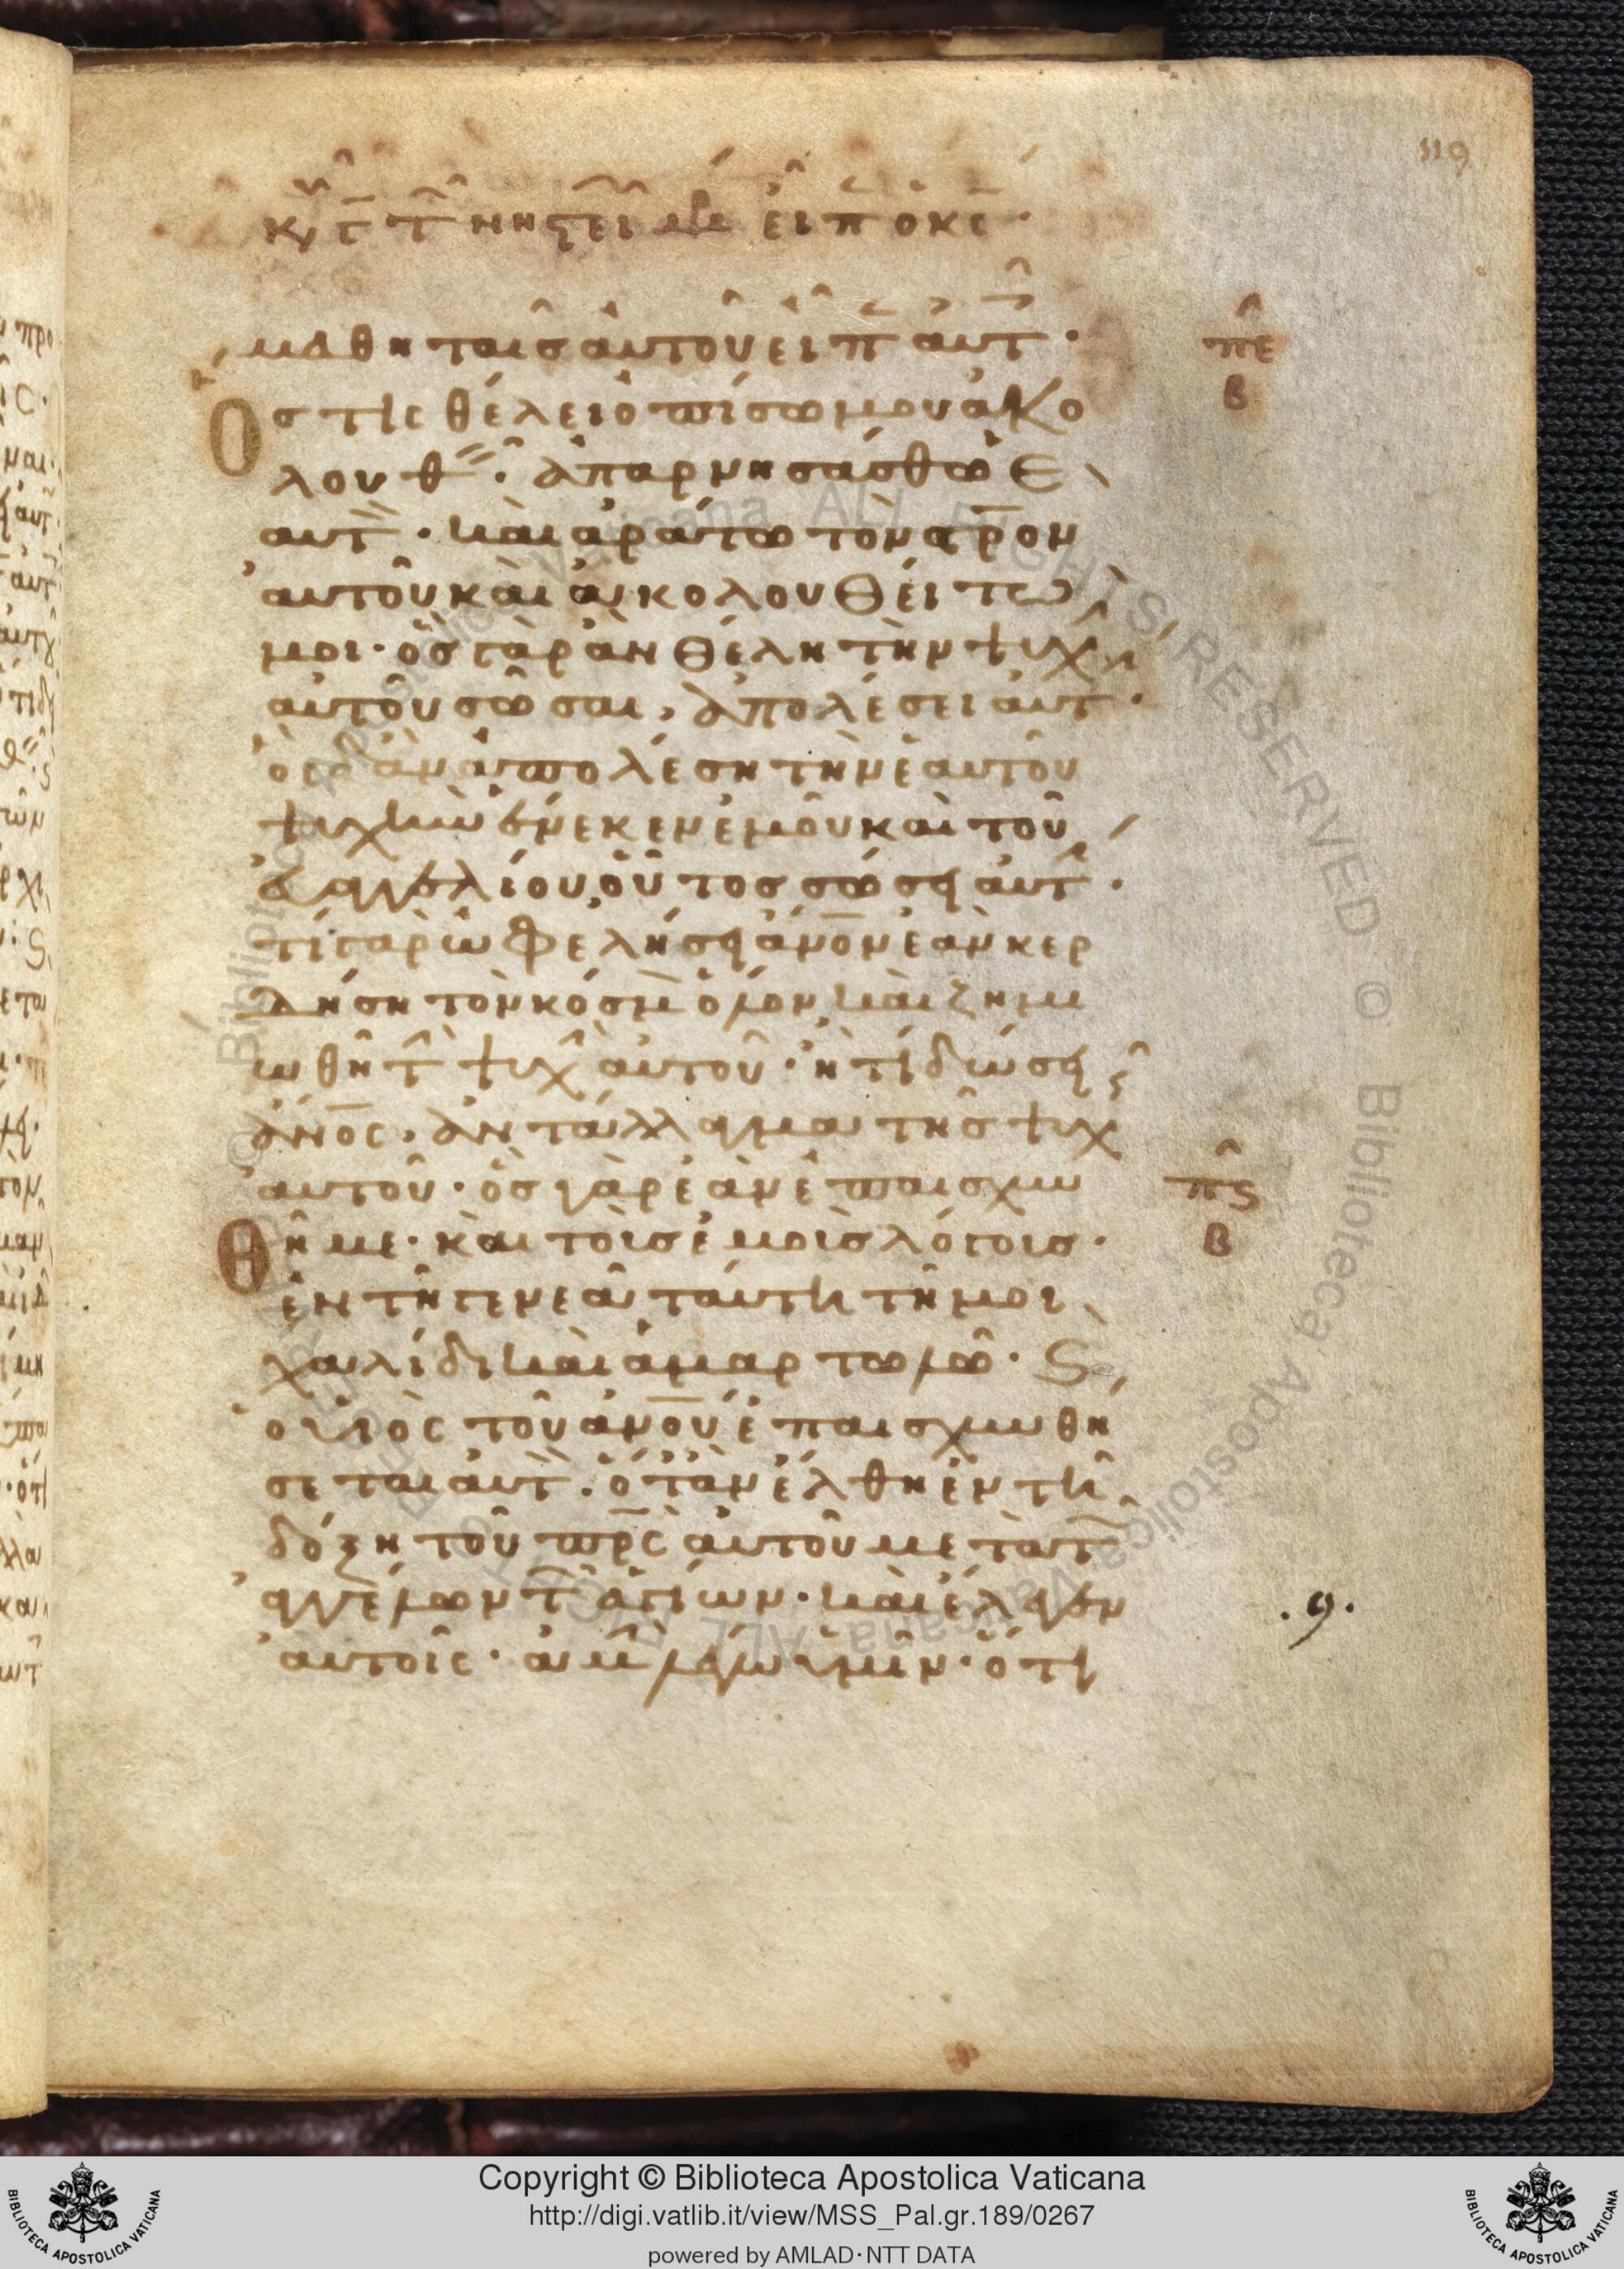 119
κυ τ τ νηστει εἰπ ὁ κς ·
μαθηταῖς αὐτοῦ εἶπ αὐτ ·
πε
β
Ὅστις θέλει ὀπίσω μου ἀκο
λουθ · ἀπαρνησάσθω ἑ
αυτ · καὶ ἀράτω τὸν σρον
αὐτοῦ καὶ ἀκολουθείτω
μοι · ὃς γὰρ ἂν θέλη τὴν ψυχ
αὐτοῦ σῶσαι, ἀπολέσει αὐτ ·
ὃς δ ἂν ἀπολέση τὴν ἑαυτοῦ
ψυχὴν ἕνεκεν ἐμοῦ καὶ τοῦ
εὐαγγελίου, οὗτος σώσει αὐτ ·
τί γὰρ ὠφελήσει ἀνον ἐὰν κερ
δήση τὸν κόσμ ὅλον καὶ ζημι
ωθῆ τ ψυχ αὐτοῦ · ἢ τί δώσει
ἀνος, ἀντάλλαγμα τῆς ψυχ
αὐτοῦ · ὃς γὰρ ἐὰν ἐπαισχυν
πς
β
θῆ με · καὶ τοὺς ἐμοὺς λόγους ·
ἐν τῆ γενεᾶ ταύτη τῆ μοι
χαλίδι καὶ ἁμαρτωλῶ · ϛ
ὁ υἱὸς τοῦ ἀνου ἐπαισχυνθή
σεται αὐτ · ὅταν ἔλθη ἐν τῆ
δόξη τοῦ πρς αὐτοῦ μετὰ τ
ἀγγέλων τ ἁγίων · καὶ ἔλεγεν
.9.
αὐτοῖς · ἀμὴν λέγω ὑμῖν · ὅτι
Copyright © Biblioteca Apostolica Vaticana
http://digi.vatlib.it/view/MSS_Pal.gr.189/0267
powered by AMLAD·NTT DATA
BIBLIOTECA APOSTOLICA VATICANA
BIBLIOTECA APOSTOLICA VATICANA